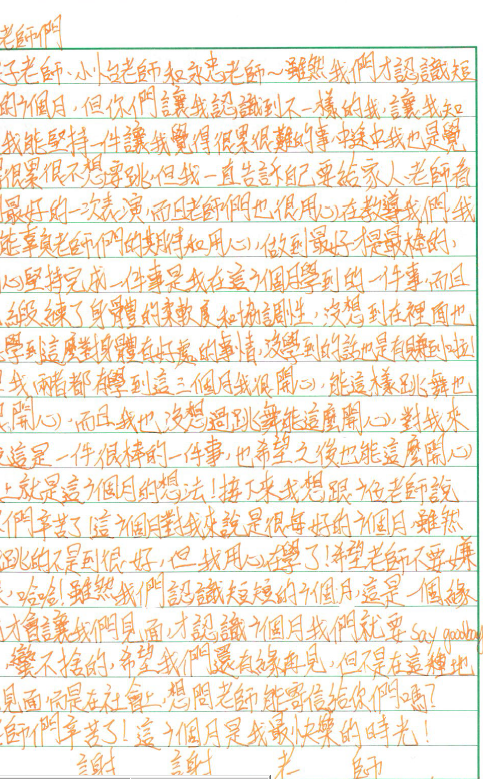 老師們
老師、小白老師和永忠老師~雖然我們才認識短
的3個月,但你們讓我認識到不一樣的我,讓我知
我能堅持一件讓我覺得很累很難的事,中途中我也是覺
很累很不想要跳,但我一直告訴自己要給家人、老師看
最好的一次表演,而且老師們也很用心在教導我們,我
能辜負老師們的期待和用心,做到最好才是最棒的,
心堅持完成一件事是我在這3個月學到的一件事,而且
鍛練了身體的柔軟度和協調性,沒想到在裡面也
學到這麼對身體有好處的事情,沒學到的話也是有難
我兩者都有學到這三個月我很開心,能這樣跳舞也
開心,而且我也沒想過跳舞能這麼開心,對我來
這是一件很棒的一件事,也希望之後也能這麼開心
上就是這3個月的想法!接下來我想跟3位老師說
們辛苦了!這3個月對我來說是很每好的3個月,雖然
跳的不是到很好,但我用心在學了!希望老師不要嫌
,哈哈!雖然我們認識短短的3個月,這是一個緣
才會讓我們見面,才認識3個月我們就要say goodbay
蠻不捨的,希望我們還有緣再見,但不是在這種地
見面而是在社會上,想問老師能寄信給你們嗎?
師們辛苦了!這3個月是我最快樂的時光!
謝 謝 老 師